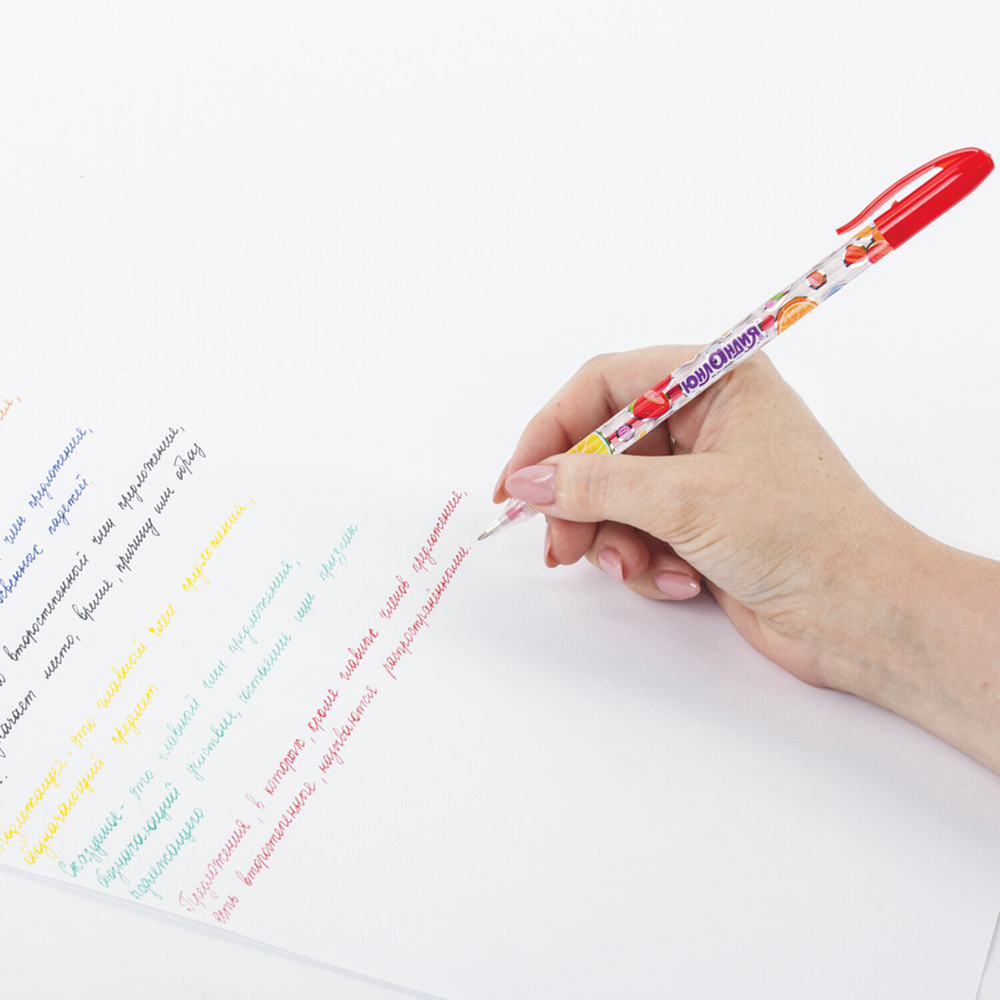 ние,
и член предложения,
свенных падежей.
второстепенный член предложения,
означает место, время, причину или образ
Подлежащее - это главный член предложения,
обозначающий предмет.
Сказуемое - это главный член предложения,
обозначающий действие, состояние или признак
подлежащего.
Предложения, в которых, кроме главных членов предложения,
есть второстепенные, называются распространёнными.
ЮНЛАНДИЯ